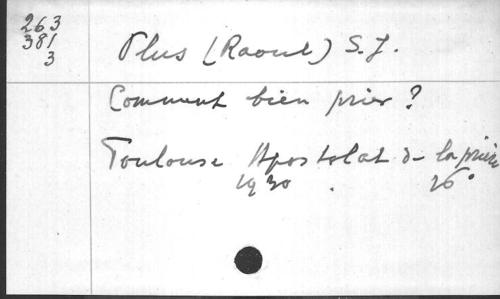 263
381
3
Plus (Raoul) S.J.
Comment bien prier ?
Toulouse Apostolat de la prière
1930. 26°